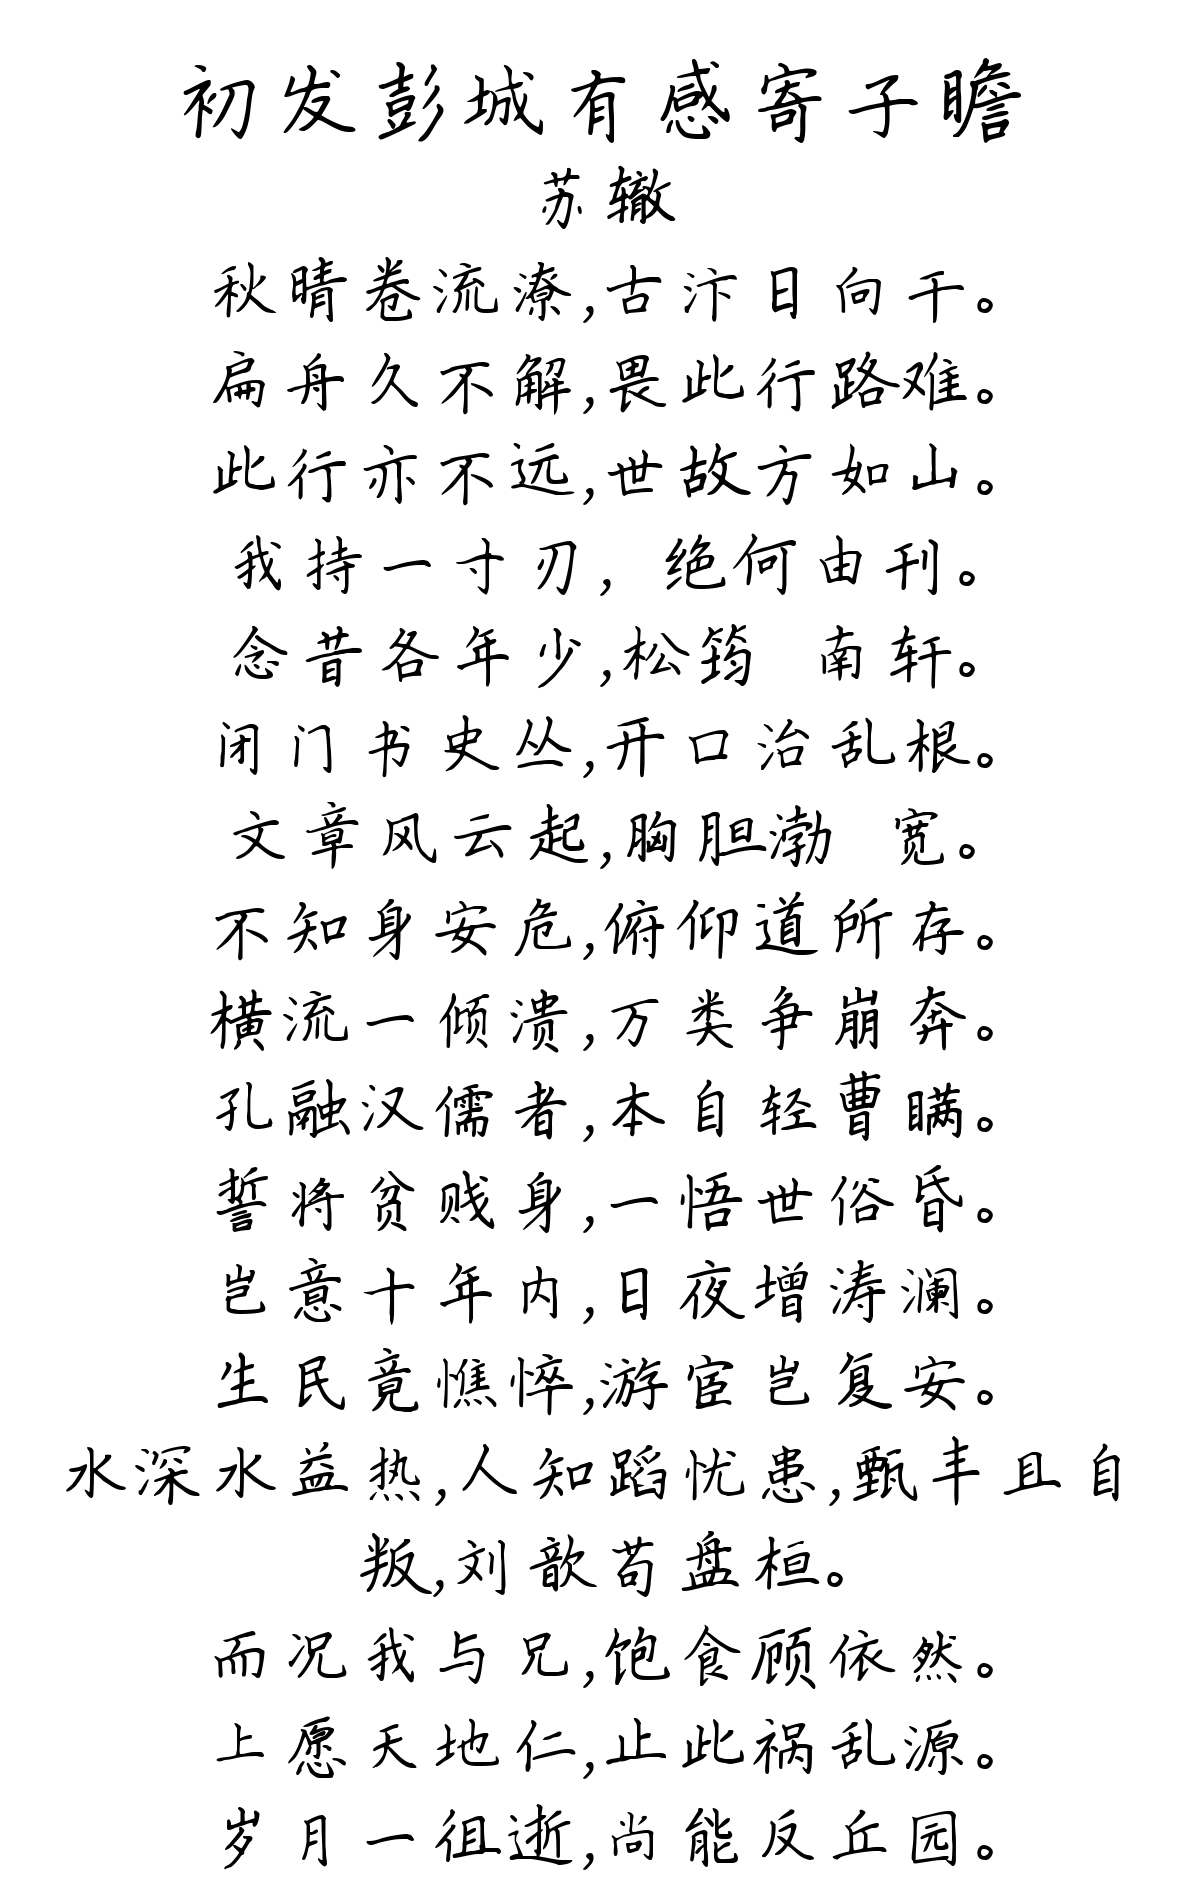 初发彭城有感寄子瞻
苏辙
秋晴卷流潦,古汴日向干。
扁舟久不解,畏此行路难。
此行亦不远,世故方如山。
我持一寸刃, 绝何由刊。
念昔各年少,松筠 南轩。
闭门书史丛,开口治乱根。
文章风云起,胸胆渤 宽。
不知身安危,俯仰道所存。
横流一倾溃,万类争崩奔。
孔融汉儒者,本自轻曹瞒。
誓将贫贱身,一悟世俗昏。
岂意十年内,日夜增涛澜。
生民竟憔悴,游宦岂复安。
水深水益热,人知蹈忧患,甄丰且自
叛,刘歆苟盘桓。
而况我与兄,饱食顾依然。
上愿天地仁,止此祸乱源。
岁月一徂逝,尚能反丘园。